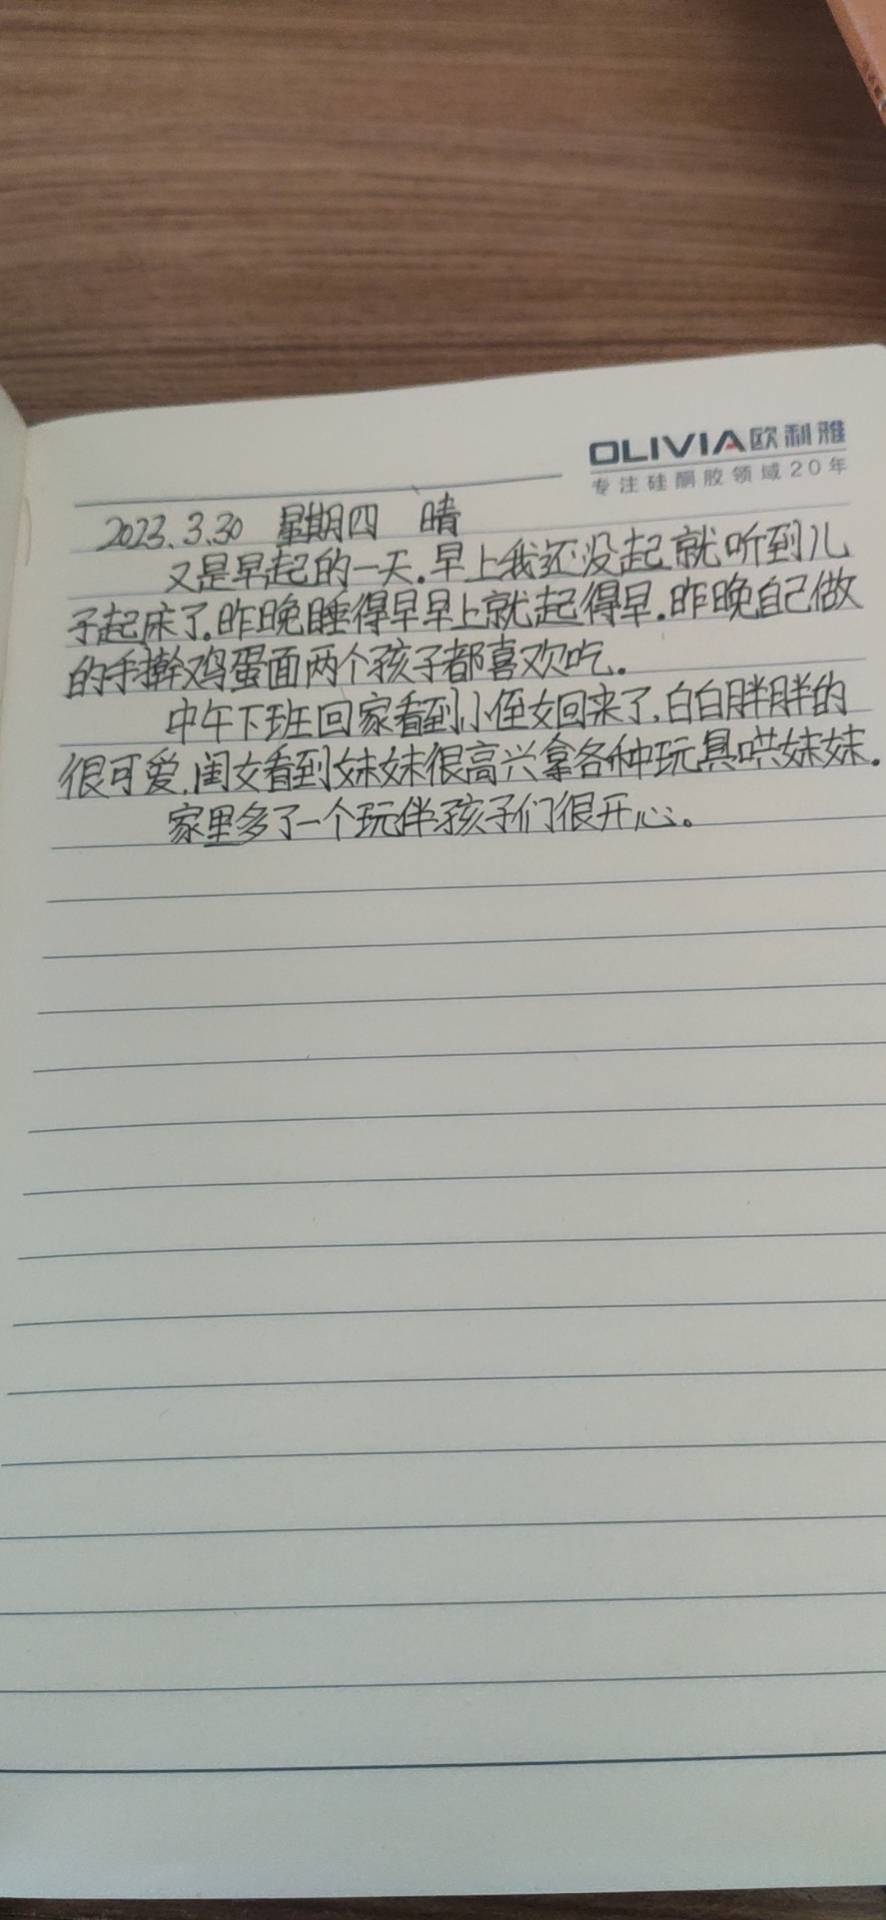 OLIVIA欧利雅
专注硅酮胶领域20年
2023.3.30 星期四 晴
又是早起的一天.早上我还没起就听到儿
子起床了.昨晚睡得早早上就起得早.昨晚自己做
的手擀鸡蛋面两个孩子都喜欢吃.
中午下班回家看到小侄女回来了,白白胖胖的
很可爱.闺女看到妹妹很高兴拿各种玩具哄妹妹.
家里多了一个玩伴孩子们很开心。